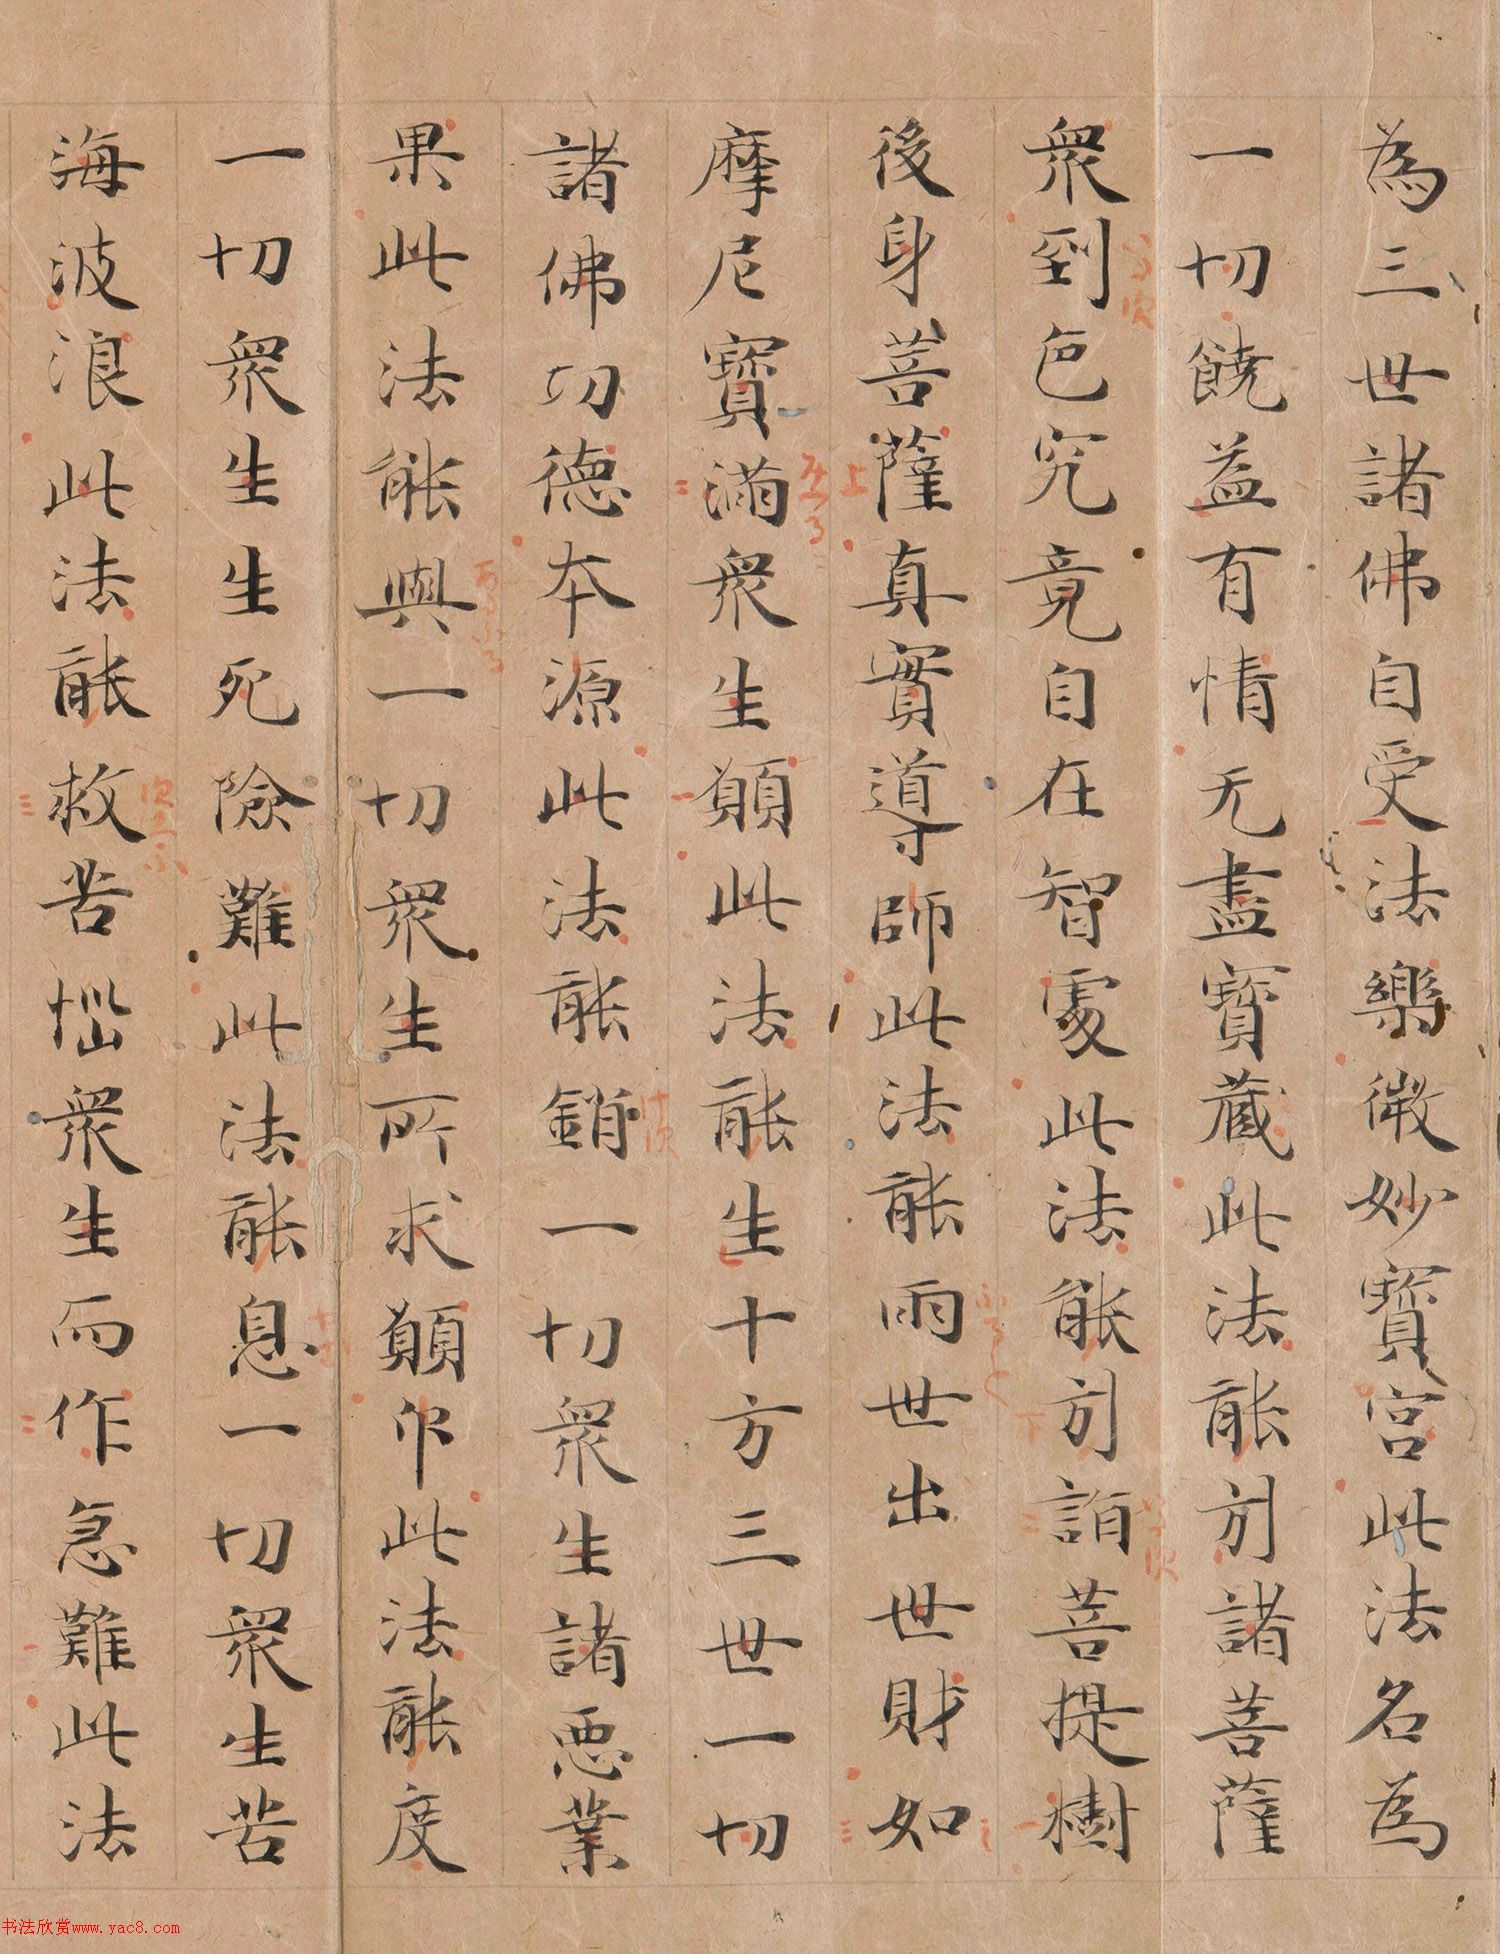 為三世諸佛自受法樂微妙寶宮此法名為
一切饒益有情无盡寶藏此法能引諸菩薩
衆到色究竟自在智處此法能引詣菩提樹
後身菩薩真實導師此法能雨世出世財如
摩尼寶滿衆生願此法能生十方三世一切
諸佛功德本源此法能銷一切衆生諸惡業
果此法能與一切衆生所求願印此法能度
一切衆生生死險難此法能息一切衆生苦
海波浪此法能救苦惱衆生而作急難此法
书法欣赏www.yac8.com